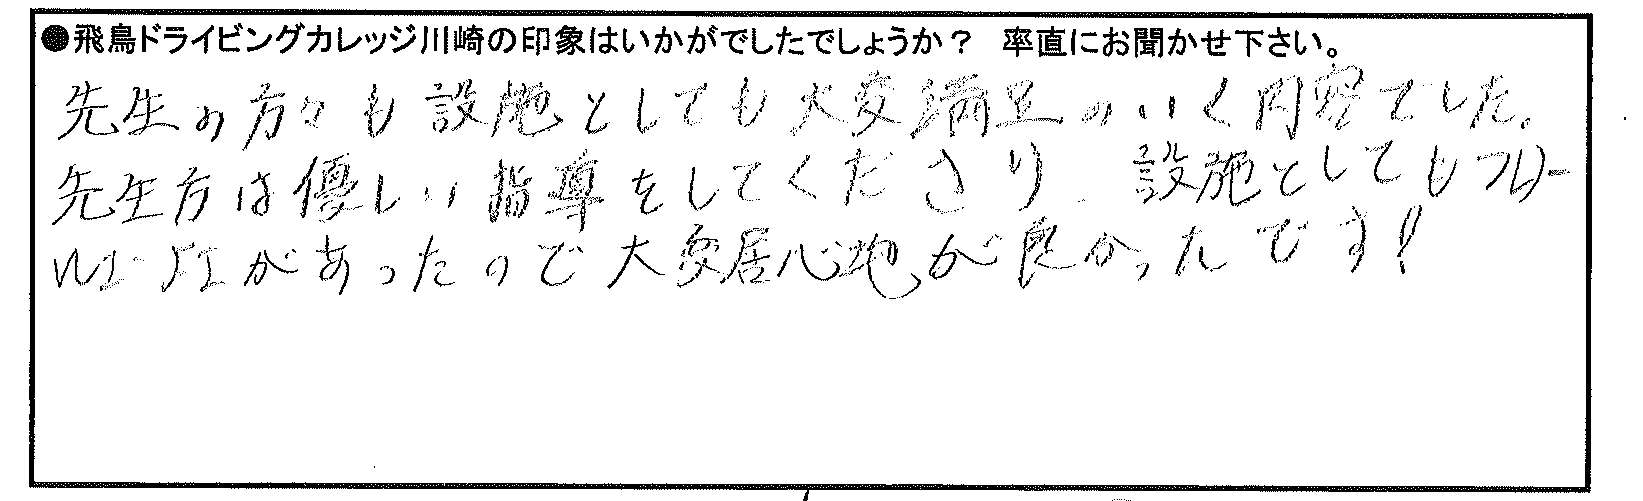 ●飛鳥ドライビングカレッジ川崎の印象はいかがでしたでしょうか？　率直にお聞かせ下さい。
先生の方々も設施としても大変満足のいく内容でした。
先生方は優しい指導をしてくださり、設施としてもフリー
Wi-Fiがあったので大変居心地が良かったです！